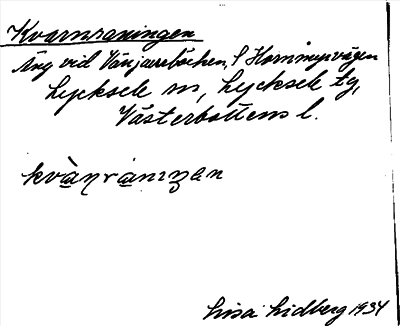 Kvarnraningen
Äng vid Vänjaurebäcken, S Hornmyrvägen
Lycksele sn, Lycksele tg,
Västerbottens l.
kvà̱ṇrà̱nıŋan
Lisa Lidberg 1934